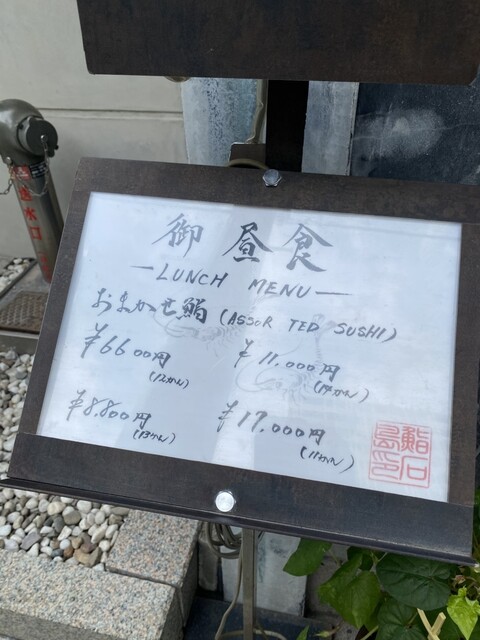 御昼食
—LUNCH MENU—
おまかせ鮨 (ASSOR TED SUSHI)
¥6600円
(12かん)
¥11,000円
(14かん)
¥8.800円
(13かん)
¥17.000円
(11かん)
鮨石島印
送水口